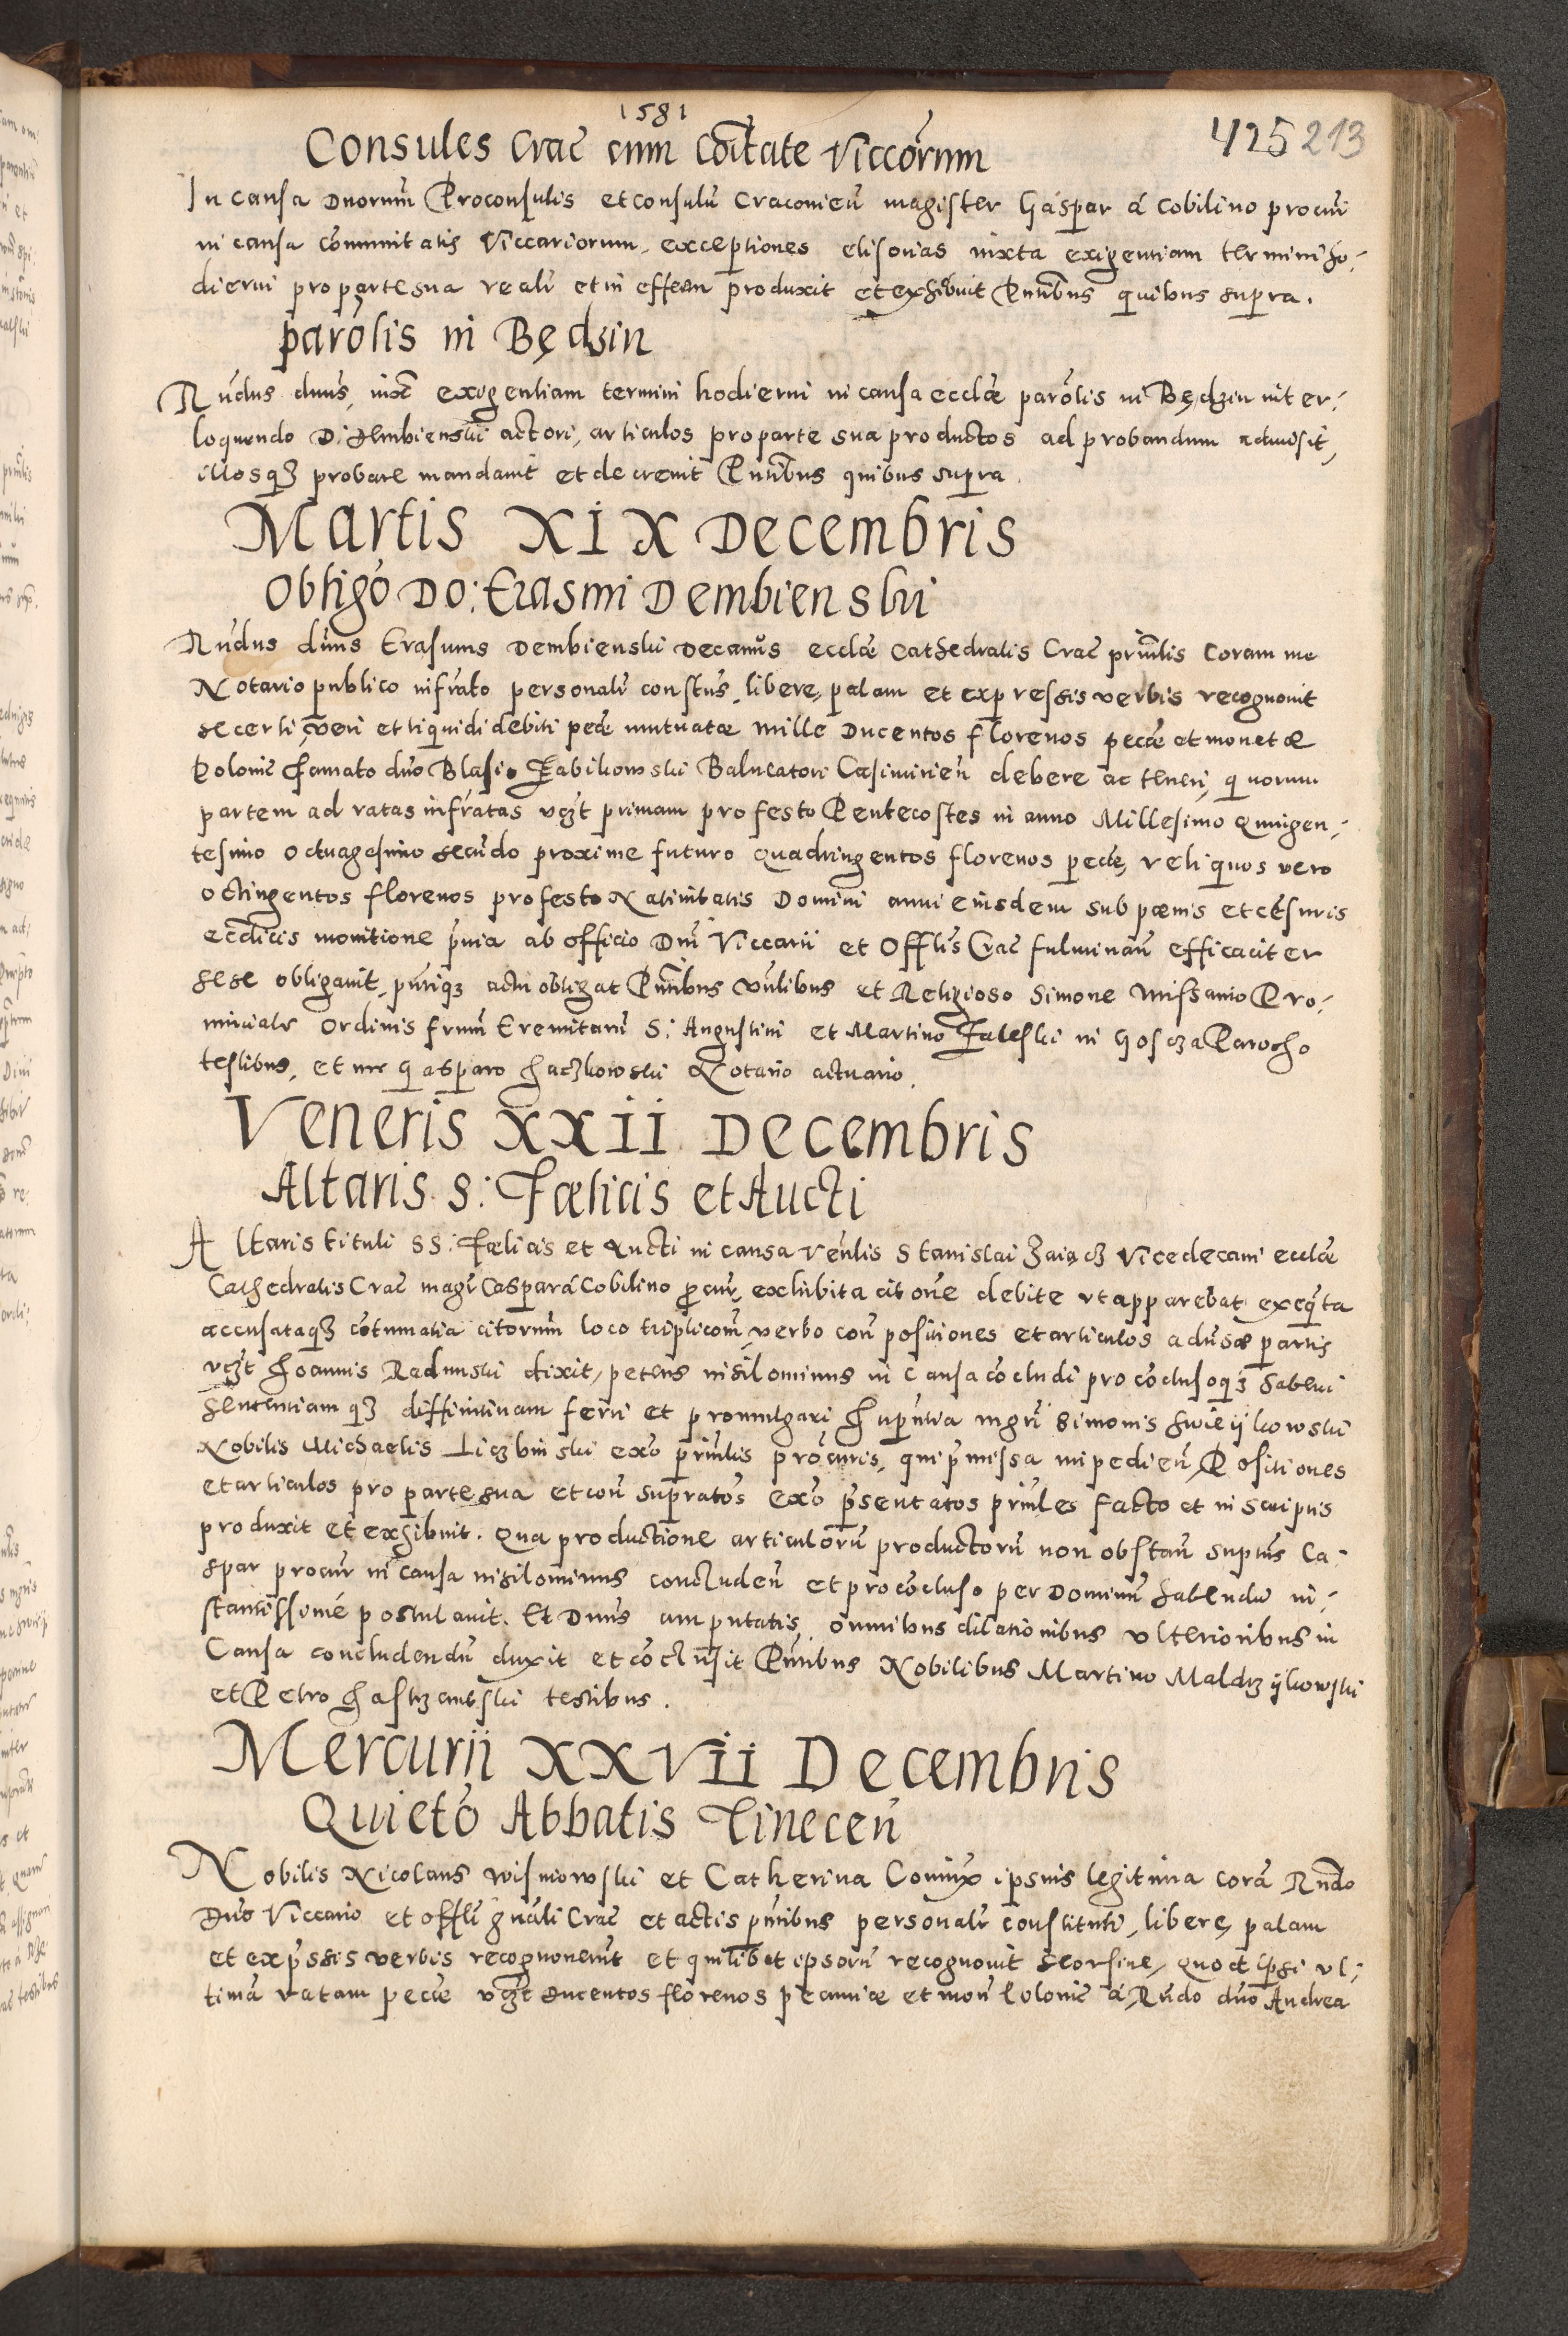 1581
425 213
Consules Crac̄ cum cōitate Viccōrum
In causa Dnorum̄ Proconsulis et consulū Cracovien̄ magister Gáspar á Cobilino procur̄
in causa cōmunitatis Viccariorum, exceptiones elisorias iuxta exigentiam termini ho-
dierni pro parte sua realr̄ et in effectu produxit et exhibuit Pn̄tibus quibus supra.
parōlis in Będzin
Rn̄dus dnus, iuxt̄ exigentiam termini hodierni in causa ecclǣ parōlis in Będzin inter-
loquendo D: Dembienski actori, articulos pro parte sua productos ad probandum admisit,
illosqȝ probare mandavit et decrevit Pn̄tibus quibus supra.
Martis XIX Decembris
Obligō Do: Erasmi Dembienski
Rn̄dus dn̄us Erasmus Dembienski Decanus ecclǣ Cathedralis Crac̄ prin̄lis Coram me
Notario publico infrāto personalr̄ constus̄, libere, palam et expressis verbis recognovit
se certi, veri et liquidi debiti pecǣ mutuatæ Mille Ducentos florenos pecǣ et monetæ
Polonic̄ famato dnō Blasio Babikowski Balneatori Casimirien̄ debere ac teneri, quorum
partem ad ratas infrātas vcȝt primam pro festo Pentecostes in anno Millesimo quingen-
tesimo octuagesimo secūdo proxime futuro quadringentos florenos pecǣ, reliquos vero
octingentos florenos pro festo Nativitatis Domini anni eiusdem sub pœnis et cēsuris
ecclīcis monitione pv̄ia ab officio Dn̄i Viccarii et Offlīs Crac̄ fulminan̄ efficaciter
sese obligavit, pn̄tiqȝ actu obligat Pn̄tibus vn̄libus et Religioso Simone Missanio Pro-
vinciale Ordinis frum̄ Eremitarū S: Augustini et Martino Faleski in Goscza Parocho
testibus, et me Gasparo Jaczkowski Notario actuario.
Veneris XXII Decembris
Altaris S: Fœlicis et Aucti
Altaris tituli SS: Fœlicis et Aucti in causa Ven̄lis Stanislai Zaiącz Vicedecani ecclǣ
Cathedralis Crac̄ magr̄ Caspar á Cobilino procur̄, exhibita citōne debite vt apparebat exeq̄ta
accusataqȝ cōtumatia citorum̄ loco triplicom̄, verbo con̄ positiones et articulos adūsæ partis
vcȝt Joannis Radunski dixit, petens nihilominus in Causa cōcludi pro cōclusoqȝ haberi
Sententiamqȝ diffinitivam ferri et promulgari In pn̄tia mgrī Simonis
Nobilis Michaelis Liczbinski exō prin̄lis prōcuris, qui pm̄issa impedien̄ Positiones
et articulos pro parte sua et con̄ supratōs exō pn̄sentatos prin̄les facto et in Scriptis
produxit et exhibuit. Qua productione articulorū productorū non obstan̄ suptus̄ Ca-
spar procur̄ in causa nihilominus concluden̄ et pro cōcluso per Dominū habendū in-
stantissimé postulavit. Et Dnus amputatis, omnibus dilationibus vlterioribus in
Causa concludendū duxit et cōclusit Pn̄tibus Nobilibus Martino Maldrzÿkowski
et Petro Jastrzembski testibus.
Mercurii XXVII Decembris
Quietō Abbatis Tinecen̄
Nobilis Nicolaus Wisniowski et Catherina Coniux ipsius legitima corā Rndo
Dnō Viccario et offlī gnāli Crac̄ et actis pn̄tibus personalr̄ constituti, libere, palam
et expssis verbis recognoverūt et quilibet ipsorū recognovit seorsive, quod ipsi vl-
timā ratam pecǣ vcȝt ducentos florenos pecuniæ et mon̄ Polonic̄ á Rn̄do dnō Andrea